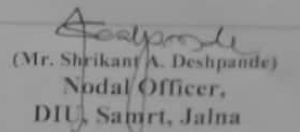 (Mr. Shrikant A. Deshpande)
Nodal Officer,
DIU, Samrt, Jalna